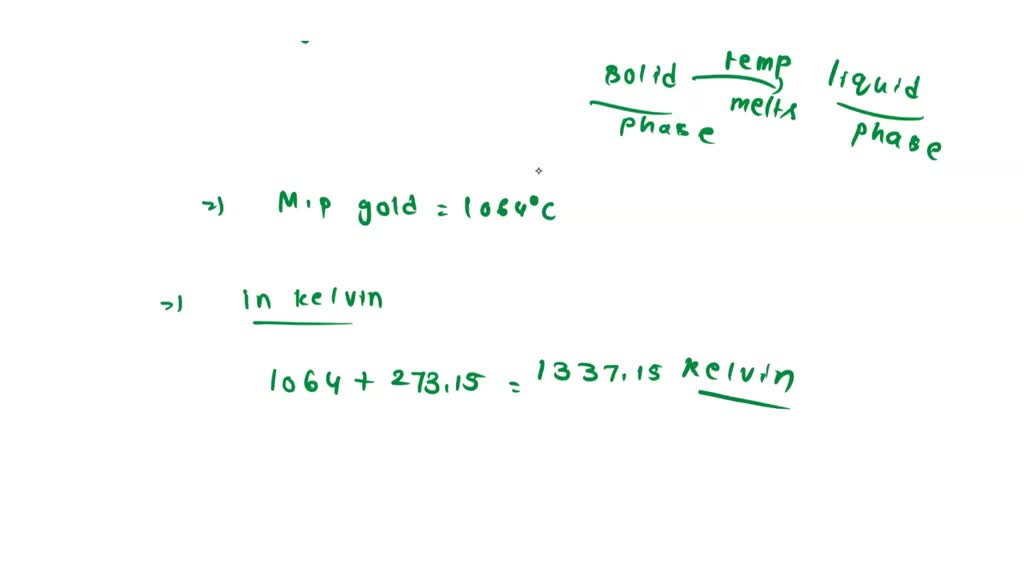 solid temp melts liquid
phase phase
=) M.p gold = 1064°C
=) in kelvin
1064 + 273.15 = 1337.15 kelvin